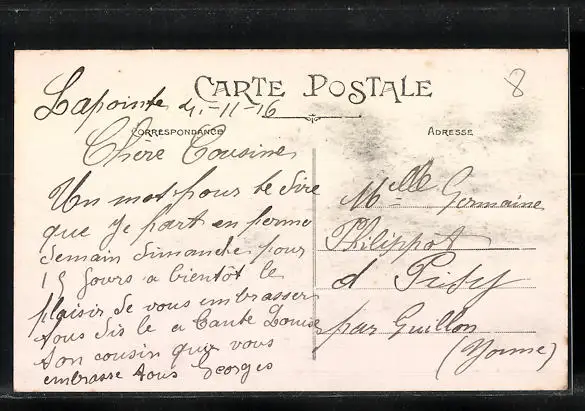 8
CARTE POSTALE
Lapointe 4-11-16
CORRESPONDANCE
ADRESSE
Chère Cousine
Un mot pour te dire
que je part en perme
demain dimanche pour
15 jours a bientôt le
plaisir de vous embrasser
tous dis le a Tante Louise
ton cousin qui vous
embrasse tous Georges
Melle Germaine
Philippot
d Pisy
par Guillon
(Yonne)